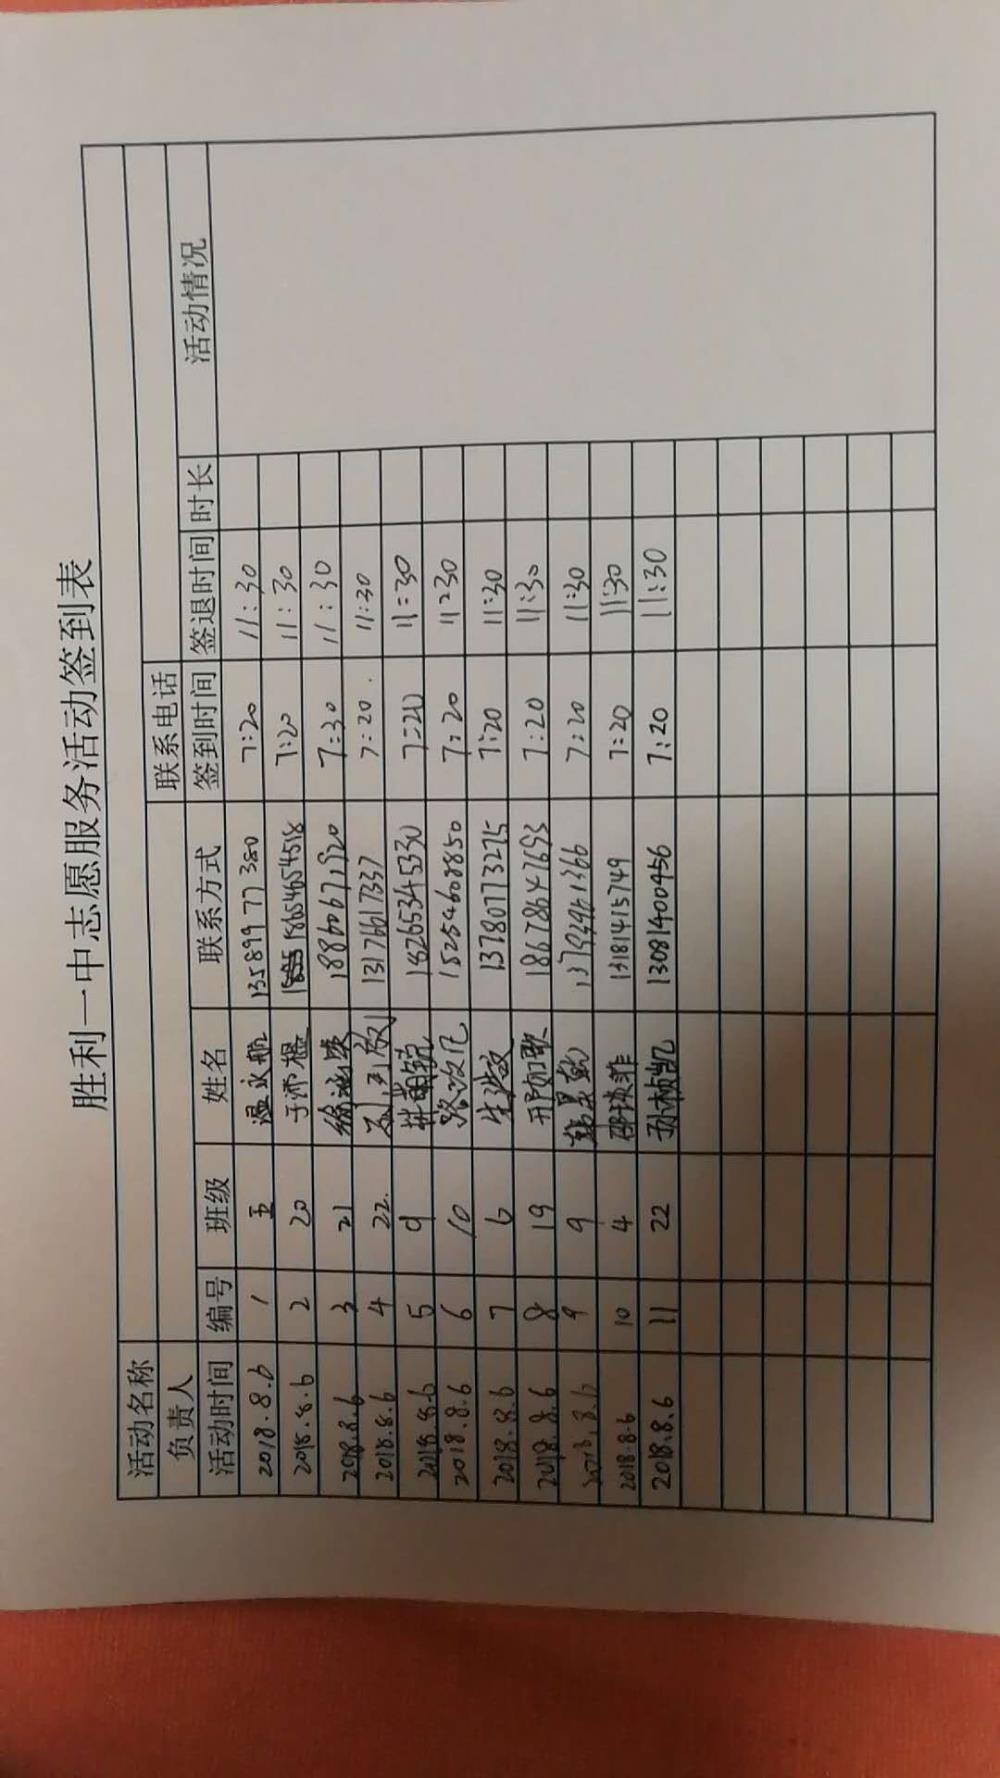 胜利一中志愿服务活动签到表
活动名称
负责人 联系电话
活动时间 编号 班级 姓名 联系方式 签到时间 签退时间 时长 活动情况
2018.8.6 1 五 温永航 13589977380 7:20 11:30
2018.8.6 2 20 于沛 18654654518 7:20 11:30
2018.8.6 3 21 18806671920 7:30 11:30
2018.8.6 4 22. 13176617337 7:20. 11:30
2018.8.6 5 9 18265345330 7:20 11:30
2018.8.6 6 10 15254608850 7:20 11:30
2018.8.6 7 6 13780773275 7:20 11:30
2018.8.6 8 19 邢如歌 18678647693 7:20 11:30
2018.8.6 9 9 7:20 11:30
2018.8.6 10 4 13181415749 7:20 11:30
2018.8.6 11 22 孙桢凯 13081400456 7:20 11:30